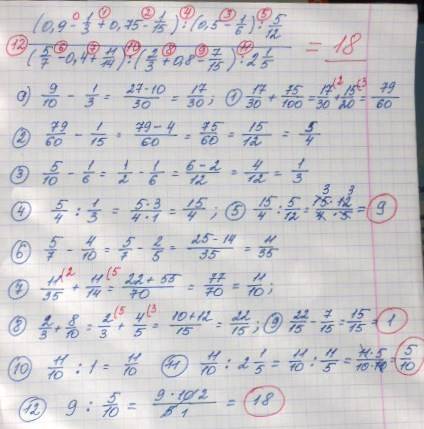 (0,9 - 1/3 + 0,75 - 1/15) : (0,5 - 1/6) : 5/12
12 ——— = 18
(5/7 - 0,4 + 11/14) : (2/3 + 0,8 - 7/15) : 2 1/5
0) 9/10 - 1/3 = 27-10/30 = 17/30; 1) 17/30 + 75/100 = 17/30 + 15/20 = 79/60
2) 79/60 - 1/15 = 79-4/60 = 75/60 = 15/12 = 5/4
3) 5/10 - 1/6 = 1/2 - 1/6 = 6-2/12 = 4/12 = 1/3
4) 5/4 : 1/3 = 5·3/4·1 = 15/4; 5) 15/4 : 5/12 = 15·12/4·5 = 9
6) 5/7 - 4/10 = 5/7 - 2/5 = 25-14/35 = 11/35
7) 11/35 + 11/14 = 22+55/70 = 77/70 = 11/10;
8) 2/3 + 8/10 = 2/3 + 4/5 = 10+12/15 = 22/15; 9) 22/15 - 7/15 = 15/15 = 1
10) 11/10 : 1 = 11/10 11) 11/10 : 2 1/5 = 11/10 : 11/5 = 11·5/10·10 = 5/10
12) 9 : 5/10 = 9·10 2/5 1 = 18